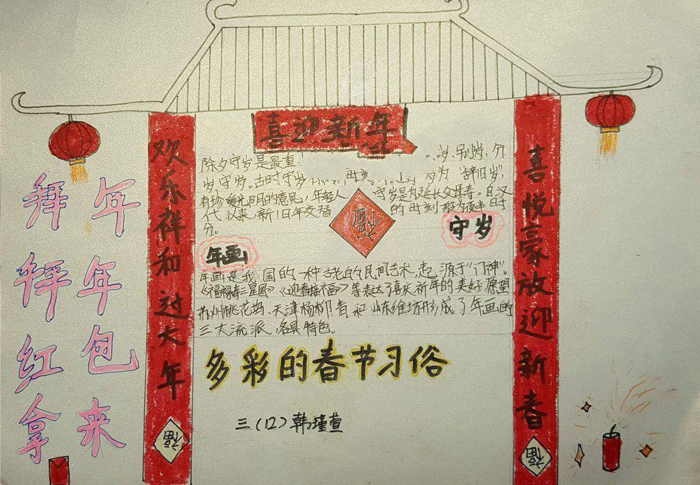 喜迎新年
欢乐祥和过大年
喜悦豪放迎新春
福
福
福
拜年
拜年
红包
拿来
除夕守岁是最重
岁守岁。古时守岁
为"辞旧岁",
有珍惜光阴的意思,年轻人
守岁是为延长父母寿。自汉
代以来,新旧年交替
的时刻一般为夜半时
分。
守岁
年画
年画是我国的一种古老的民间艺术,起源于"门神"。
等表达了喜庆新年的美好愿望
苏州桃花坞、天津杨柳青和山东潍坊形成了年画的
三大流派,各具特色。
多彩的春节习俗
三(12)韩瑾萱